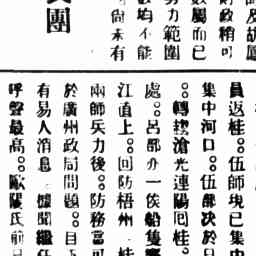 及胡
財政稍可
數屬而已
努力範圍
數均不能
尚未有
團
員返桂。。伍師現已集中
集中河口。。伍部决於日
。。轉 滄光連陽囘桂。
處。。呂部亦一俟船隻
江直上。。囘防梧州 桂
兩師兵力後。。防務當可
於廣州政局問題。。目
有易人消息 據聞繼任
呼聲最高。。歐陽氏前日